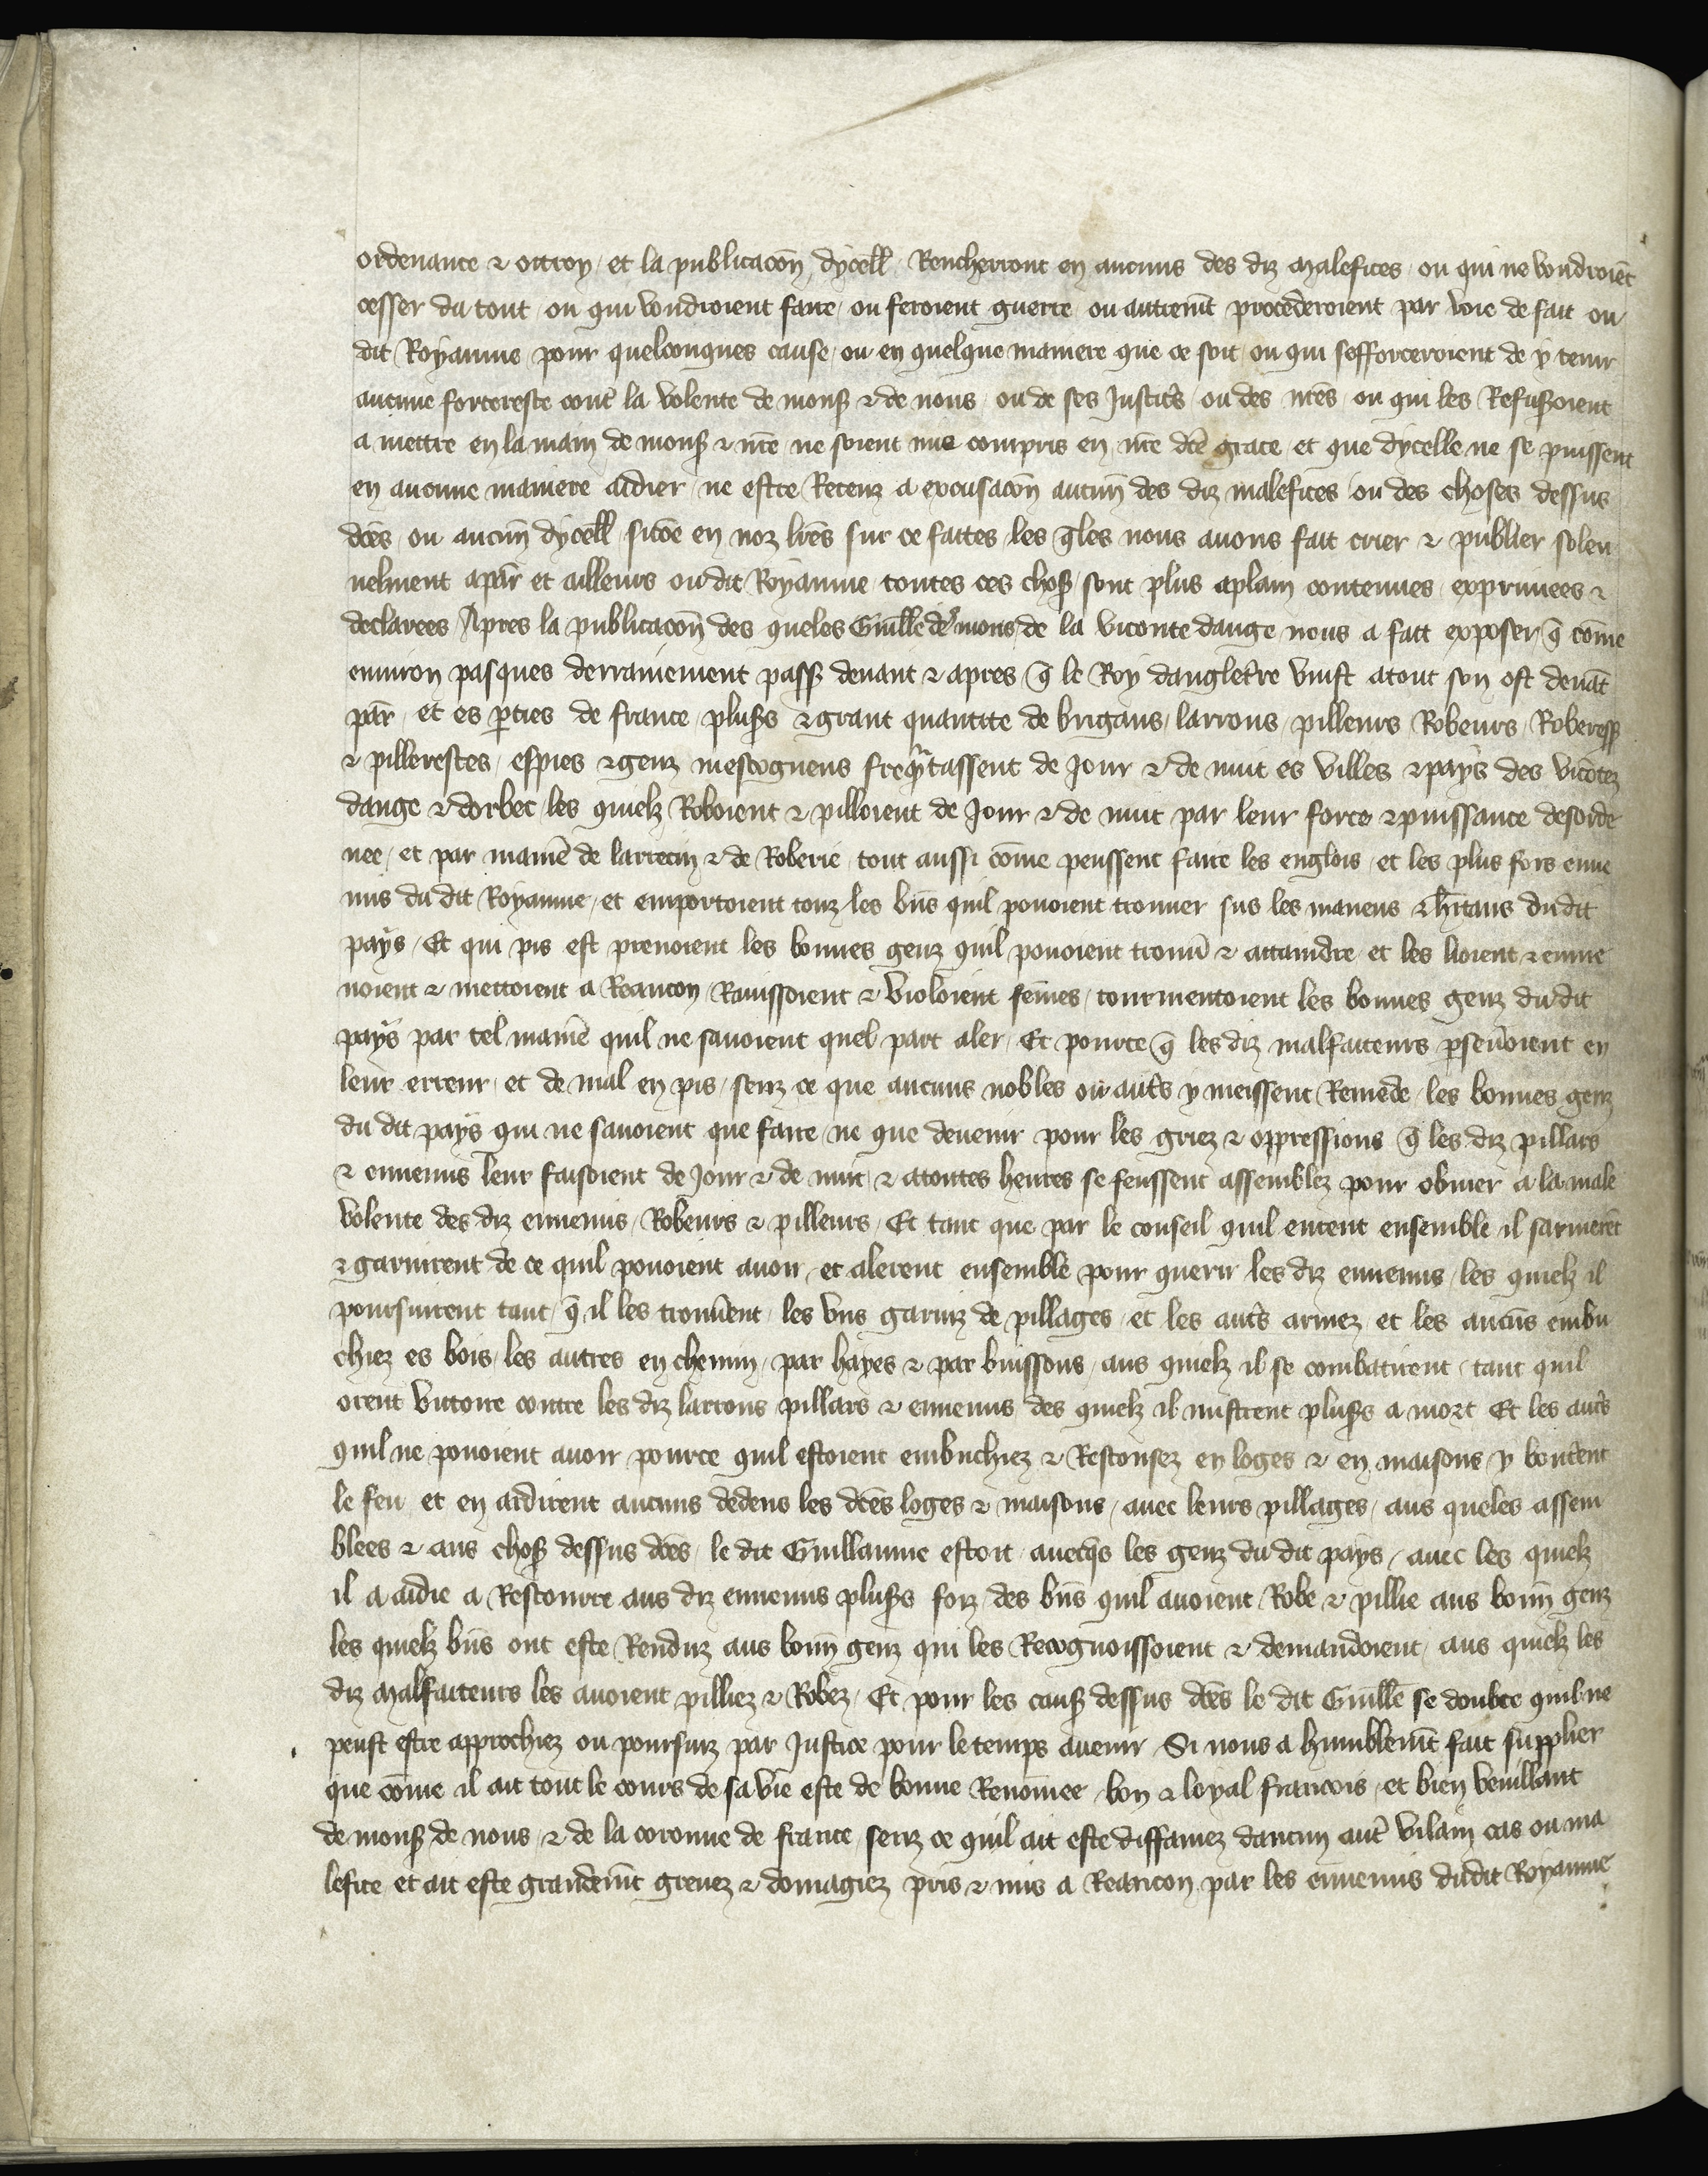 ordenance ⁊ ottroy / et la publicacōn dycell̄ Rencherront en aucuns des diz malefices / ou qui ne voudroiēt
cesser du tout / ou qui voudroient faire / ou feroient guerre / ou autremt̄ procederoient par voie de fait ou
dit Royaume pour quelconques cause / ou en quelque maniere que ce soit / ou qui sefforceroient de y tenir
aucune forteresce contˀ la volente de monsˀ ⁊ de nous / ou de ses Justicˀs ou des nr̄es / ou qui les Refusoient
a mettre en la main de monsˀ ⁊ nr̄e / ne soient mie compris en nr̄e dcē grace / et que dycelle ne se puissent
en aucune maniere aidier / ne estre Receuz a excusacōn aucun̄ des diz malefices ou des choses dessus
dcēs / ou aucun̄ dycell̄ / sicōe en noz lr̄es sur ce faites / les q̄les nous auons fait crier ⁊ publier solen
nelment a par̄ et ailleurs ou dit Royaume / toutes ces chosˀ sont plus aplain contenues / exprimees ⁊
declarees Apres la publicacōn des queles Guill̄e de mons / de la viconte dauge nous a fait exposer / q̄ cōme
enuiron pasques derrainement passˀ deuant ⁊ apres / q̄ le Roy dangletˀre vinst atout son ost deuāt
par̄ / et es ꝑties de france / plusˀs ⁊ grant quantite de brigans / larrons / pilleurs Robeurs / Roberessˀ
⁊ pilleresces / espies ⁊ genz mescogneus freq̄ntassent de Jour ⁊ de nuit es villes ⁊ pays des vicōtez
dauge ⁊ dorbec les quielx Roboient ⁊ pilloient de Jour ⁊ de nuit par leur force ⁊ puissance desorde
nee / et par manie᷑ de larrecin ⁊ de Roberie / tout aussi cōme peussent faire les englois / et les plus fors enne
mis du dit Royaume / et emportoient touz les bn̄s quil pouoient trouuer sus les manens ⁊ hītans du dit
pays / Et qui pis est prenoient les bonnes genz quil pouoient trouuˀ ⁊ attaindre / et les lioient ⁊ enme
noient ⁊ mettoient a Reancon / Rauissoient ⁊ violoient fēmes / tourmentoient les bonnes genz du dit
pays par tel manie᷑ quil ne sauoient quel part aler / Et pource q̄ les diz malfaiteurs ꝑseuˀoient en
leur erreur / et de mal en pis / senz ce que aucuns nobles ou autˀs y meissent Remede / les bonnes genz
du dit pays qui ne sauoient que faire / ne que deuenir pour les griez ⁊ oppressions q̄ les diz pillars
⁊ ennemis leur faisoient de Jour ⁊ de nuit / ⁊ atoutes heures se feussent assemblez pour obuier a la male
volente des diz ennemis / Robeurs ⁊ pilleurs / Et tant que par le conseil quil eurent ensemble il sarmerēt
⁊ garnirent de ce quil pouoient auoir / et alerent ensemble pour querir les diz ennemis / les quielx il
poursuirent tant / q̄ il les trouuˀent / les vns garniz de pillages / et les autˀs armez / et les aucūs embu
chiez es bois / les autres en chemin / par hayes ⁊ par buissons / aus quielx il se combatirent / tant quil
orent victoire contre les diz larrons pillars ⁊ ennemis / des quielx il mistrent plusˀs a mort Et les autˀs
quil ne pouoient auoir pource quil estoient embuchiez ⁊ Resconsez en loges ⁊ en maisons y boutˀent
le feu / et en ardirent aucuns dedens les dcēs loges ⁊ maisons / auec leurs pillages / aus queles assem
blees ⁊ aus chosˀ dessus dcēs / le dit Guillaume estoit auecq̄s les genz du dit pays / auec les quielx
il a aidie a Rescourre aus diz ennemis plusˀs foiz / des bn̄s quil auoient Robe ⁊ pillie aus bonn̄ genz
les quielx bn̄s ont este Renduz aus bonn̄ genz qui les Recognoissoient ⁊ demandoient / aus quielx les
diz malfaiteurs les auoient pilliez ⁊ Robez / Et pour les causˀ dessus dcēs le dit Guill̄e se doubte quil ne
peust estre approchiez ou poursuiz par Justice pour le temps auenir Si nous a humblemt̄ fait supplier
que cōme il ait tout le cours de sa vie este de bonne Renōmee / bon ⁊ loyal francois / et bien vueillant
de monsˀ de nous / ⁊ de la coronne de france / senz ce quil ait este diffamez daucun autˀ vilain cas ou ma
lefice et ait este grandemt̄ greuez ⁊ domagiez pris ⁊ mis a Reancon par les ennemis dudit Royaume